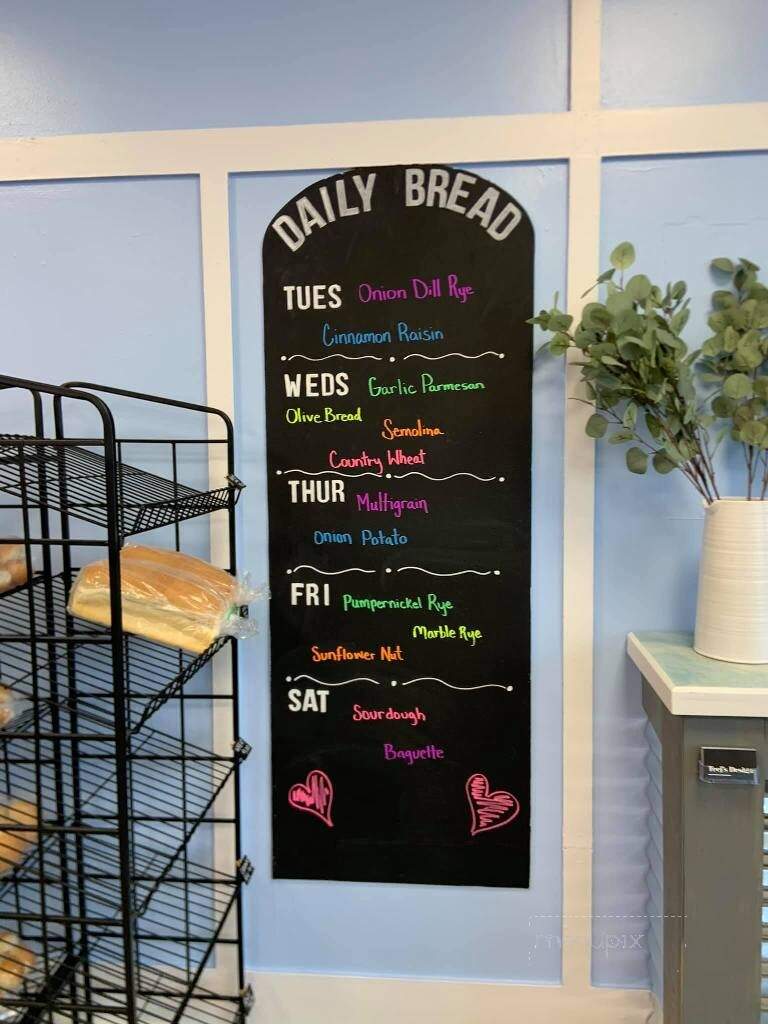 DAILY BREAD
TUES Onion Dill Rye
Cinnamon Raisin
WEDS Garlic Parmesan
Olive Bread
Semolina
Country Wheat
THUR Multigrain
Onion Potato
FRI Pumpernickel Rye
Marble Rye
Sunflower Nut
SAT Sourdough
Baguette